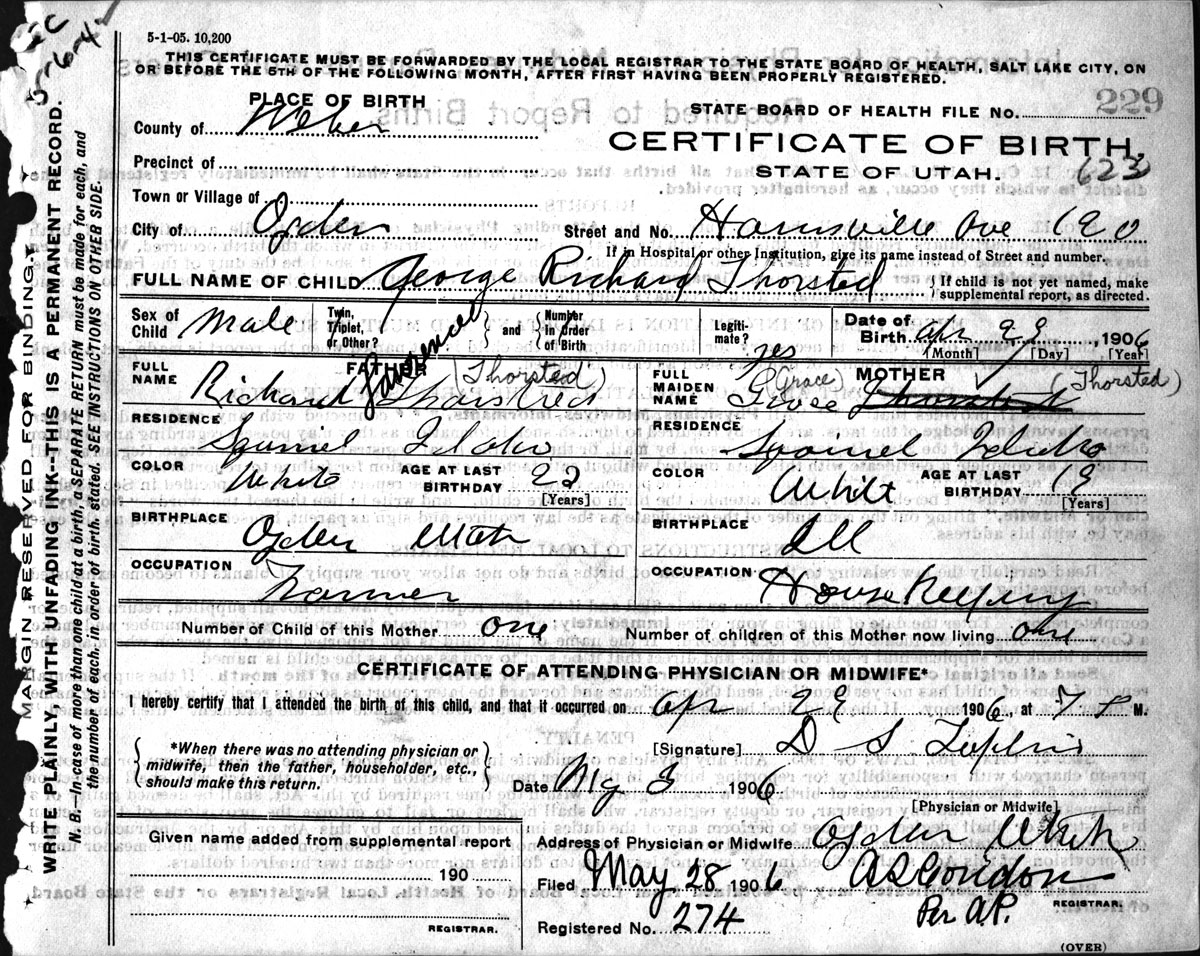 5-1-05. 10,200
THIS CERTIFICATE MUST BE FORWARDED BY THE LOCAL REGISTRAR TO THE STATE BOARD OF HEALTH, SALT LAKE CITY, ON
OR BEFORE THE 5TH OF THE FOLLOWING MONTH, AFTER FIRST HAVING BEEN PROPERLY REGISTERED.
PLACE OF BIRTH
STATE BOARD OF HEALTH FILE No. 229
County of Weber
CERTIFICATE OF BIRTH,
Precinct of
STATE OF UTAH. 623
Town or Village of
City of Ogden Street and No. Harrisville Ave
If in Hospital or other Institution, give its name instead of Street and number.
FULL NAME OF CHILD George Richard Thorsted { If child is not yet named, make supplemental report, as directed.
Sex of Child Male Twin, Triplet, or Other? } and { Number in Order of Birth Legitimate? yes Date of Birth Apr 29, 1906
[Month] [Day] [Year]
FATHER
FULL NAME Richard Lawrence (Thorsted)
RESIDENCE Squirrel Idaho
COLOR White AGE AT LAST BIRTHDAY 22
[Years]
BIRTHPLACE Ogden Utah
OCCUPATION Farmer
MOTHER
FULL MAIDEN NAME Grace (Thorsted)
RESIDENCE Squirrel Idaho
COLOR White AGE AT LAST BIRTHDAY
[Years]
BIRTHPLACE Ill
OCCUPATION House Keeping
Number of Child of this Mother one Number of children of this Mother now living one
CERTIFICATE OF ATTENDING PHYSICIAN OR MIDWIFE*
I hereby certify that I attended the birth of this child, and that it occurred on Apr 29 1906, at 7 P M.
{ *When there was no attending physician or midwife, then the father, householder, etc., should make this return. }
[Signature] D S
Date My 3 1906
[Physician or Midwife]
Given name added from supplemental report
Address of Physician or Midwife Ogden Utah
190
Filed May 28 1906 Gordon
Per A.P. REGISTRAR.
REGISTRAR.
Registered No. 274
(OVER)
MARGIN RESERVED FOR BINDING.
WRITE PLAINLY, WITH UNFADING INK--THIS IS A PERMANENT RECORD.
N. B.--In case of more than one child at a birth, a SEPARATE RETURN must be made for each, and
the number of each, in order of birth, stated. SEE INSTRUCTIONS ON OTHER SIDE.